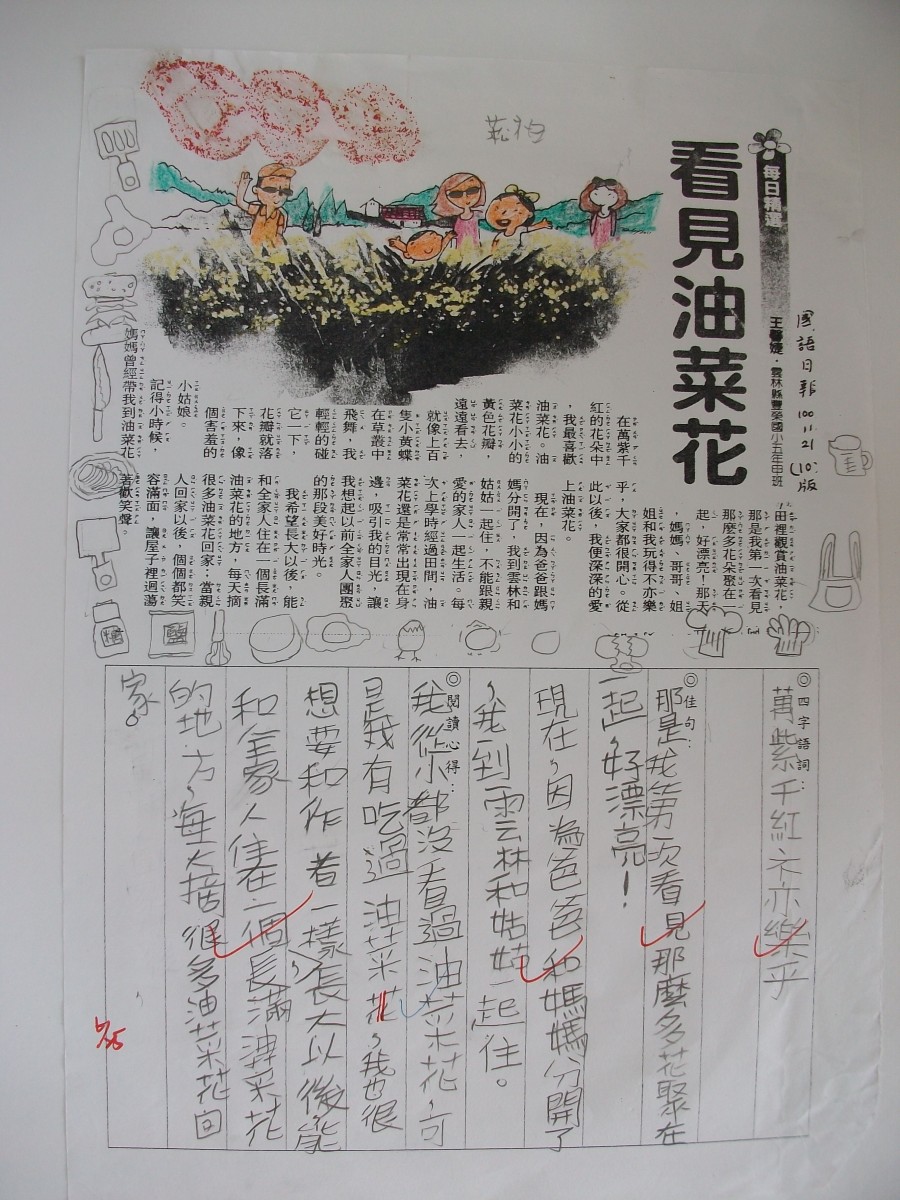 每日精選
看見油菜花
王馨婕・雲林縣豐榮國小五年甲班
國語日報 100.11.21 (10)版
在萬紫千
紅的花朵中
，我最喜歡
油菜花。油
菜花小小的
黃色花瓣，
遠遠看去，
就像上百
隻小黃蝶
在草叢中
飛舞，我
輕輕的碰
它一下，
花瓣就落
下來，像
個害羞的
小姑娘。
記得小時候，
媽媽曾經帶我到油菜花
田裡觀賞油菜花，
那是我第一次看見
那麼多花朵聚在一
起，好漂亮！那天
，媽媽、哥哥、姐
姐和我玩得不亦樂
乎，大家都很開心。從
此以後，我便深深的愛
上油菜花。
現在，因為爸爸跟媽
媽分開了，我到雲林和
姑姑一起住，不能跟親
愛的家人一起生活。每
次上學時經過田間，油
菜花還是常常出現在身
邊，吸引我的目光，讓
我想起以前全家人團聚
的那段美好時光。
我希望長大以後，能
和全家人住在一個長滿
油菜花的地方，每天摘
很多油菜花回家；當親
人回家以後，個個都笑
容滿面，讓屋子裡迴蕩
著歡笑聲。
糖
鹽
◎四字語詞：
萬紫千紅 不亦樂乎
◎佳句：
那是我第一次看見那麼多花聚在
一起，好漂亮！
現在，因為爸爸和媽媽分開了
，我到雲林和姑姑一起住。
◎閱讀心得：
我從小都沒看過油菜花，可
是我有吃過油菜花，我也很
想要和作者一樣，長大以後能
和全家人住在一個長滿油菜花
的地方，每天摘很多油菜花回
家。